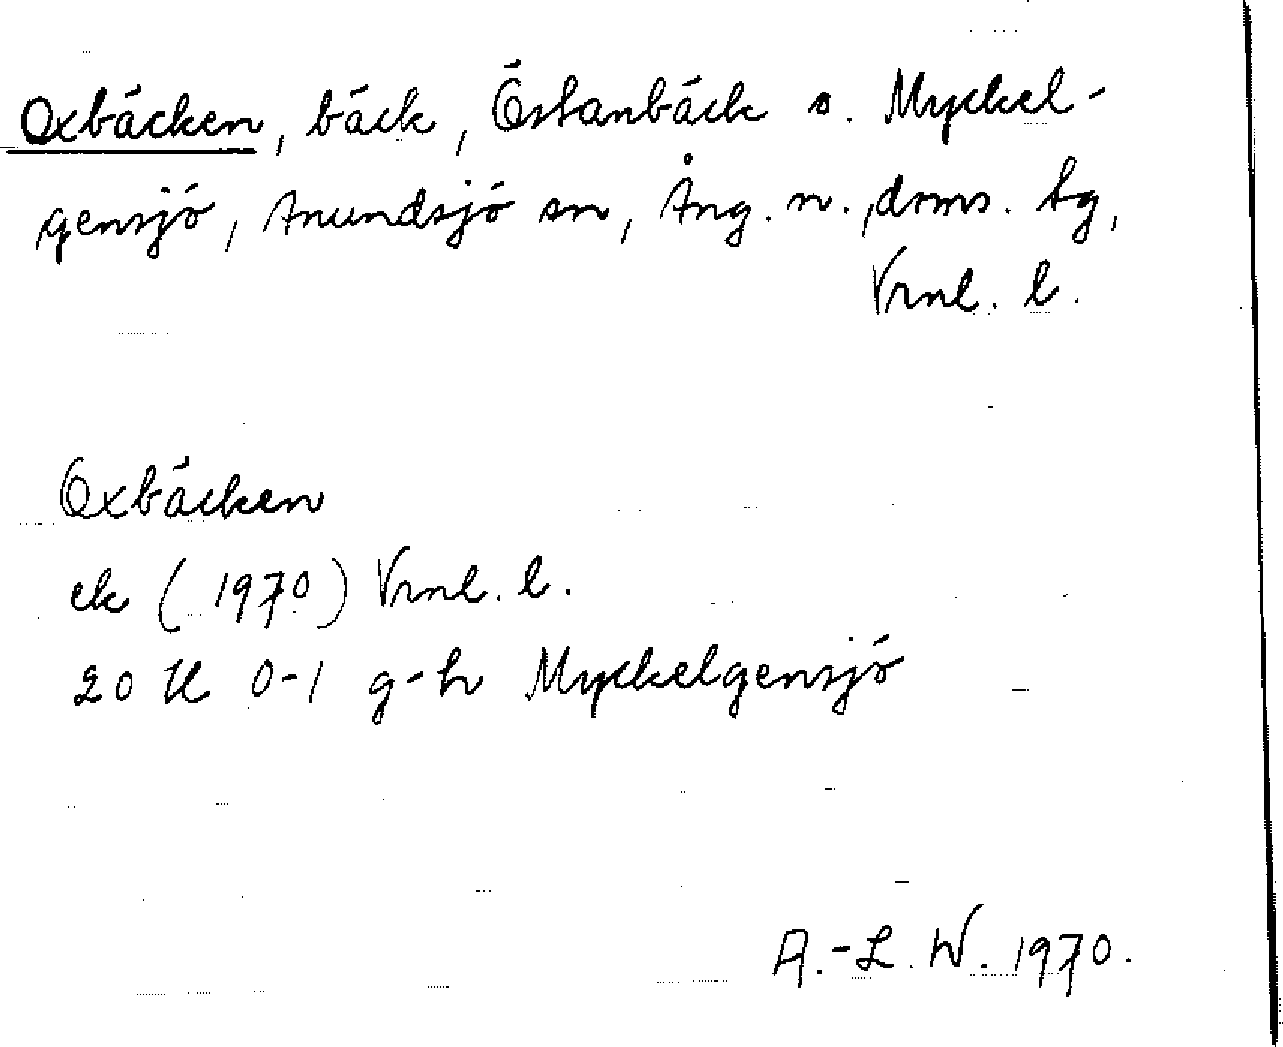 Oxbäcken, bäck, Östanbäck o. Myckel-
gensjö, Anundsjö sn, Ång. n. doms. tg,
Vrnl. l.
Oxbäcken
ek (1970) Vrnl. l.
20 H 0-1 g-h Myckelgensjö
A.-L. W. 1970.